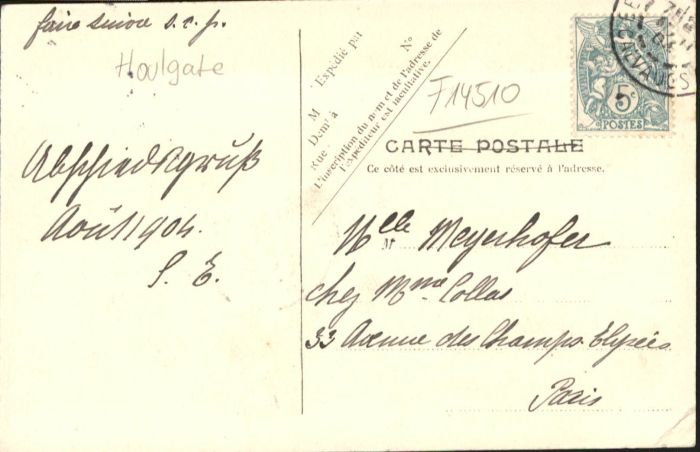 faire suivre s.v.p.
Houlgate
Abschiedsgruß
Août 1904.
S. E.
M
Expédié par
N°
Demt à
Rue
L'inscription du nom et de l'adresse de
l'expéditeur est facultative.
F14510
CARTE POSTALE
Ce côté est exclusivement réservé à l'adresse.
M
Mlle Meyerhofer
chez Mme Collas
33 Avenue des Champs Elysées
Paris
5c
POSTES
CALVADOS